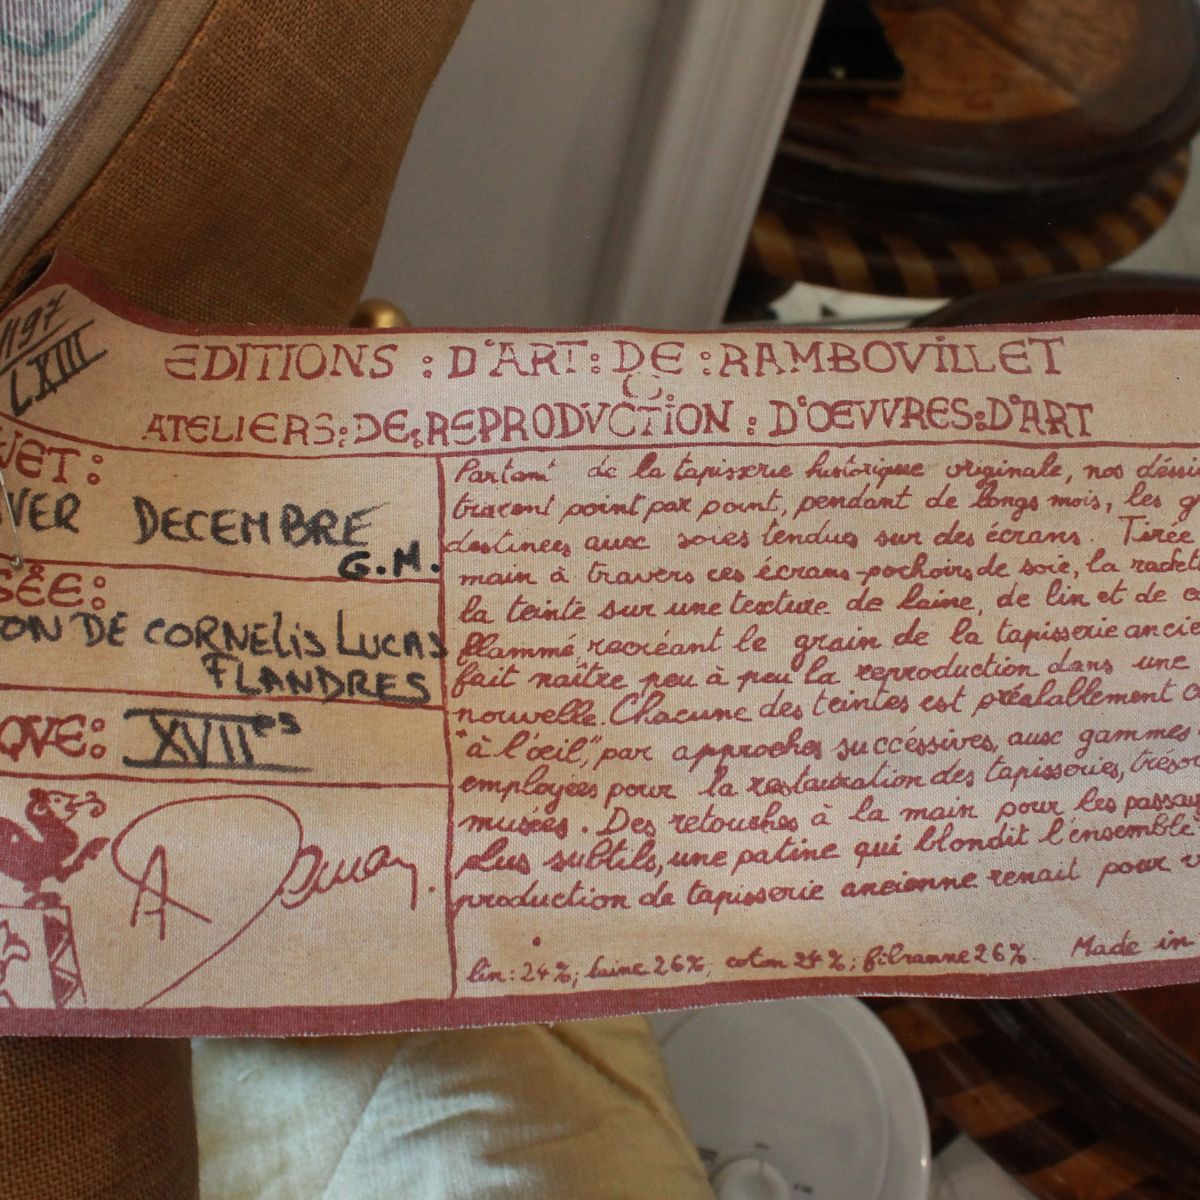 1197
LXIII
EDITIONS : D'ART : DE : RAMBOVILLET
ATELIERS : DE : REPRODVCTION : D'ŒVVRES : D'ART
JET :
VER DECEMBRE
G.M.
SÉE :
ON DE CORNELIS LUCAS
FLANDRES
QVE : XVIIes
Partant de la tapisserie historique originale, nos dessi
tracent point par point, pendant de longs mois, les g
destinées aux soies tendues sur des écrans. Tirée
main à travers ces écrans-pochoirs de soie, la racle
la teinte sur une texture de laine, de lin et de c
flammé recréant le grain de la tapisserie ancie
fait naître peu à peu la reproduction dans une
nouvelle. Chacune des teintes est préalablement c
"à l'œil", par approches succéssives, aux gammes
employées pour la restauration des tapisseries, trésor
musées. Des retouches à la main pour les passa
plus subtils, une patine qui blondit l'ensemble
production de tapisserie ancienne renait pour v
lin : 24% ; laine 26% ; coton 24% ; fibranne 26%. Made in